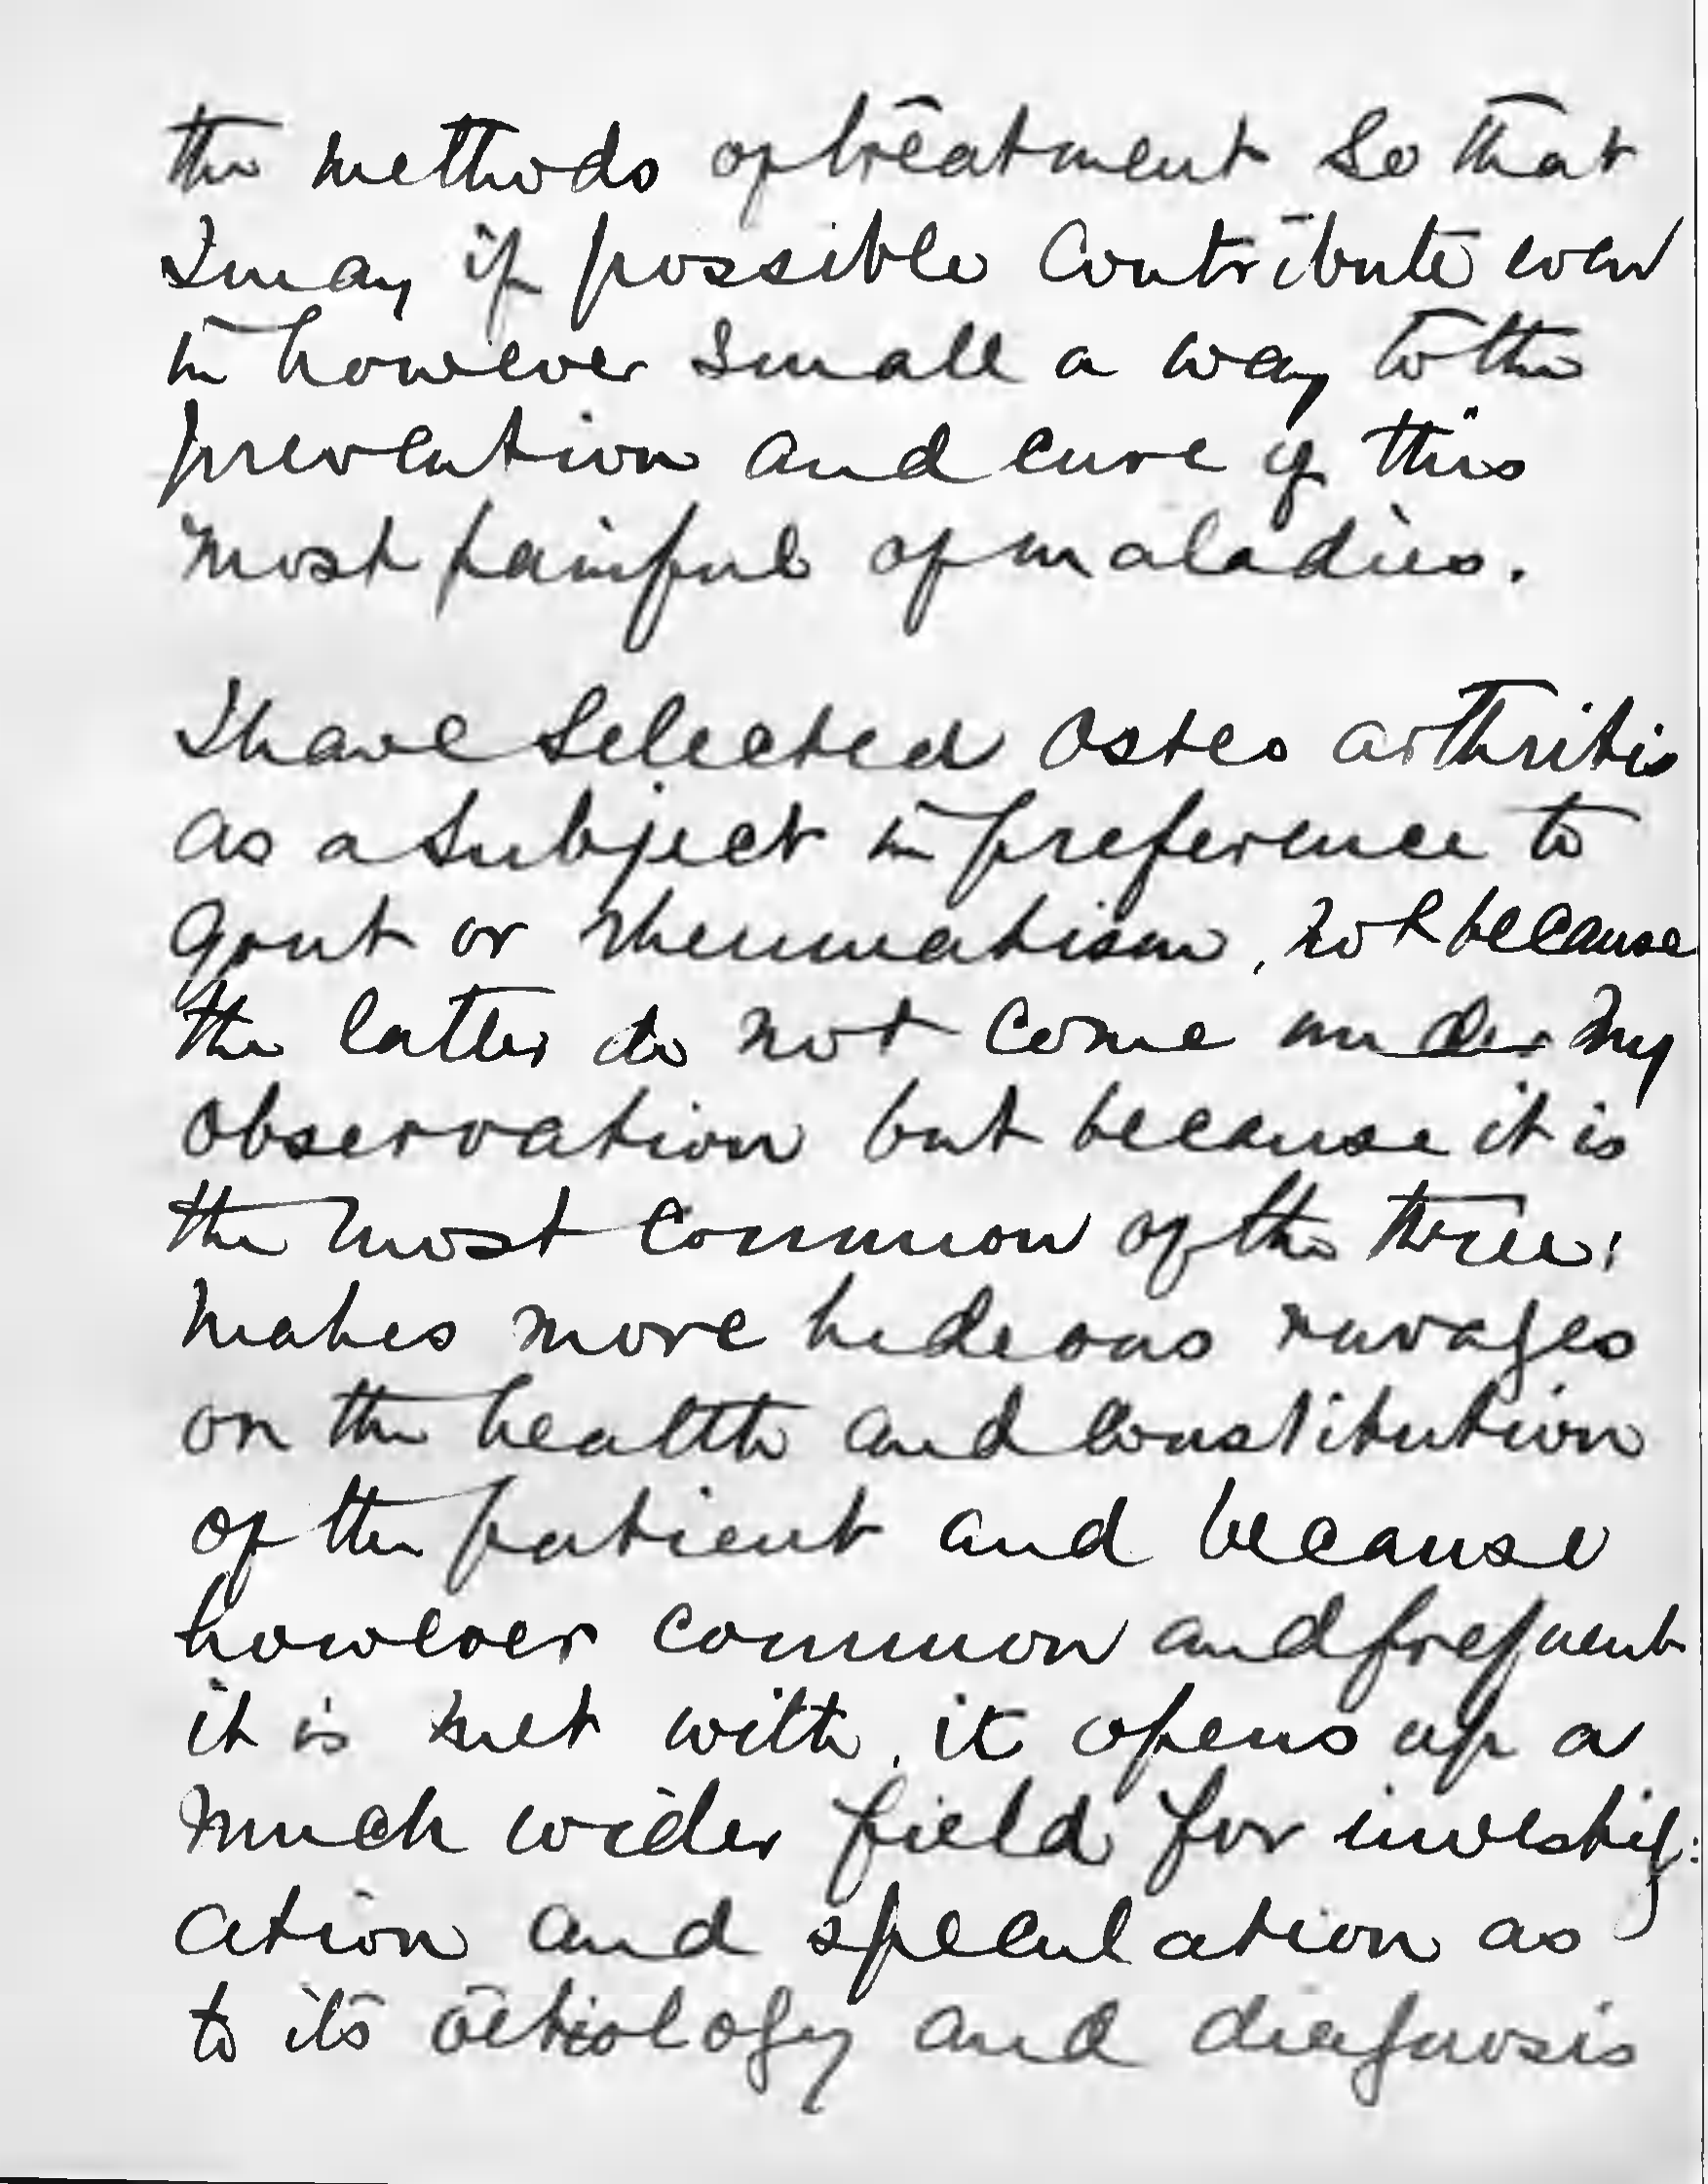 the methods of treatment so that
I may if possible contribute even
in however small a way to the
prevention and cure of this
most painful of maladies.
I have selected Osteo arthritis
as a subject in preference to
Gout or rheumatism, not because
the latter do not come under my
observation but because it is
the most common of the three;
makes more hideous ravages
on the health and constitution
of the patient and because
however common and frequent
it is met with, it opens up a
much wider field for investig:
ation and speculation as
to its oetiology and diagnosis